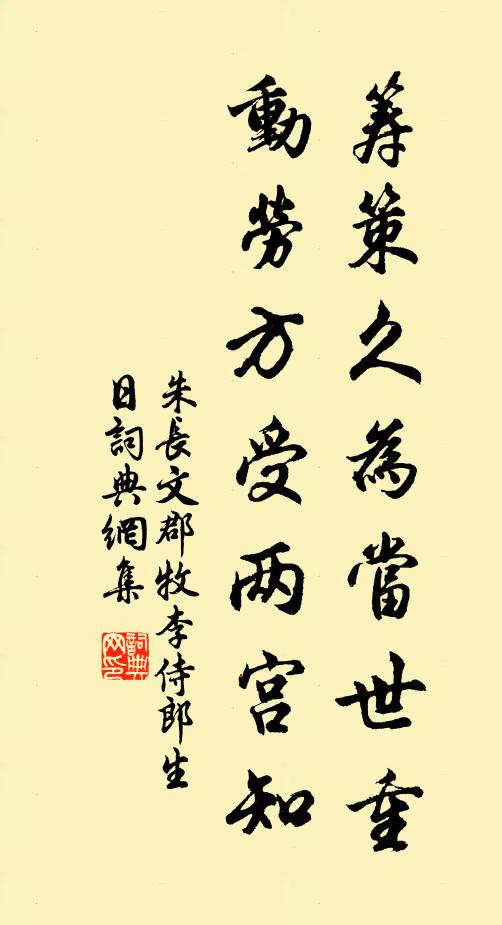 筹策久為當世重
動勞方受两宫知
朱長文郡牧李侍郎生
日詞典網集
詞典
网印